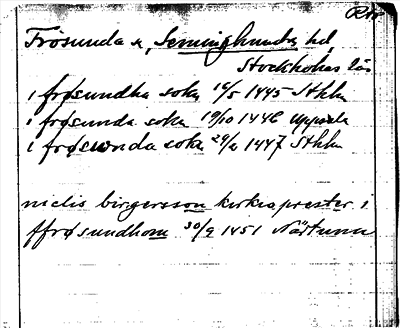 Frösunda sn, Seminghundra hd,
Stockholms län
i frøsundha sokn 16/5 1445 Sthlm
i frøsunda sokn 19/10 1446 Uppsala
i frøswnda sokn 29/2 1447 Sthlm
nielis birgersson kirkiaprester i
ffrøsundhom 30/9 1451 Närtuna